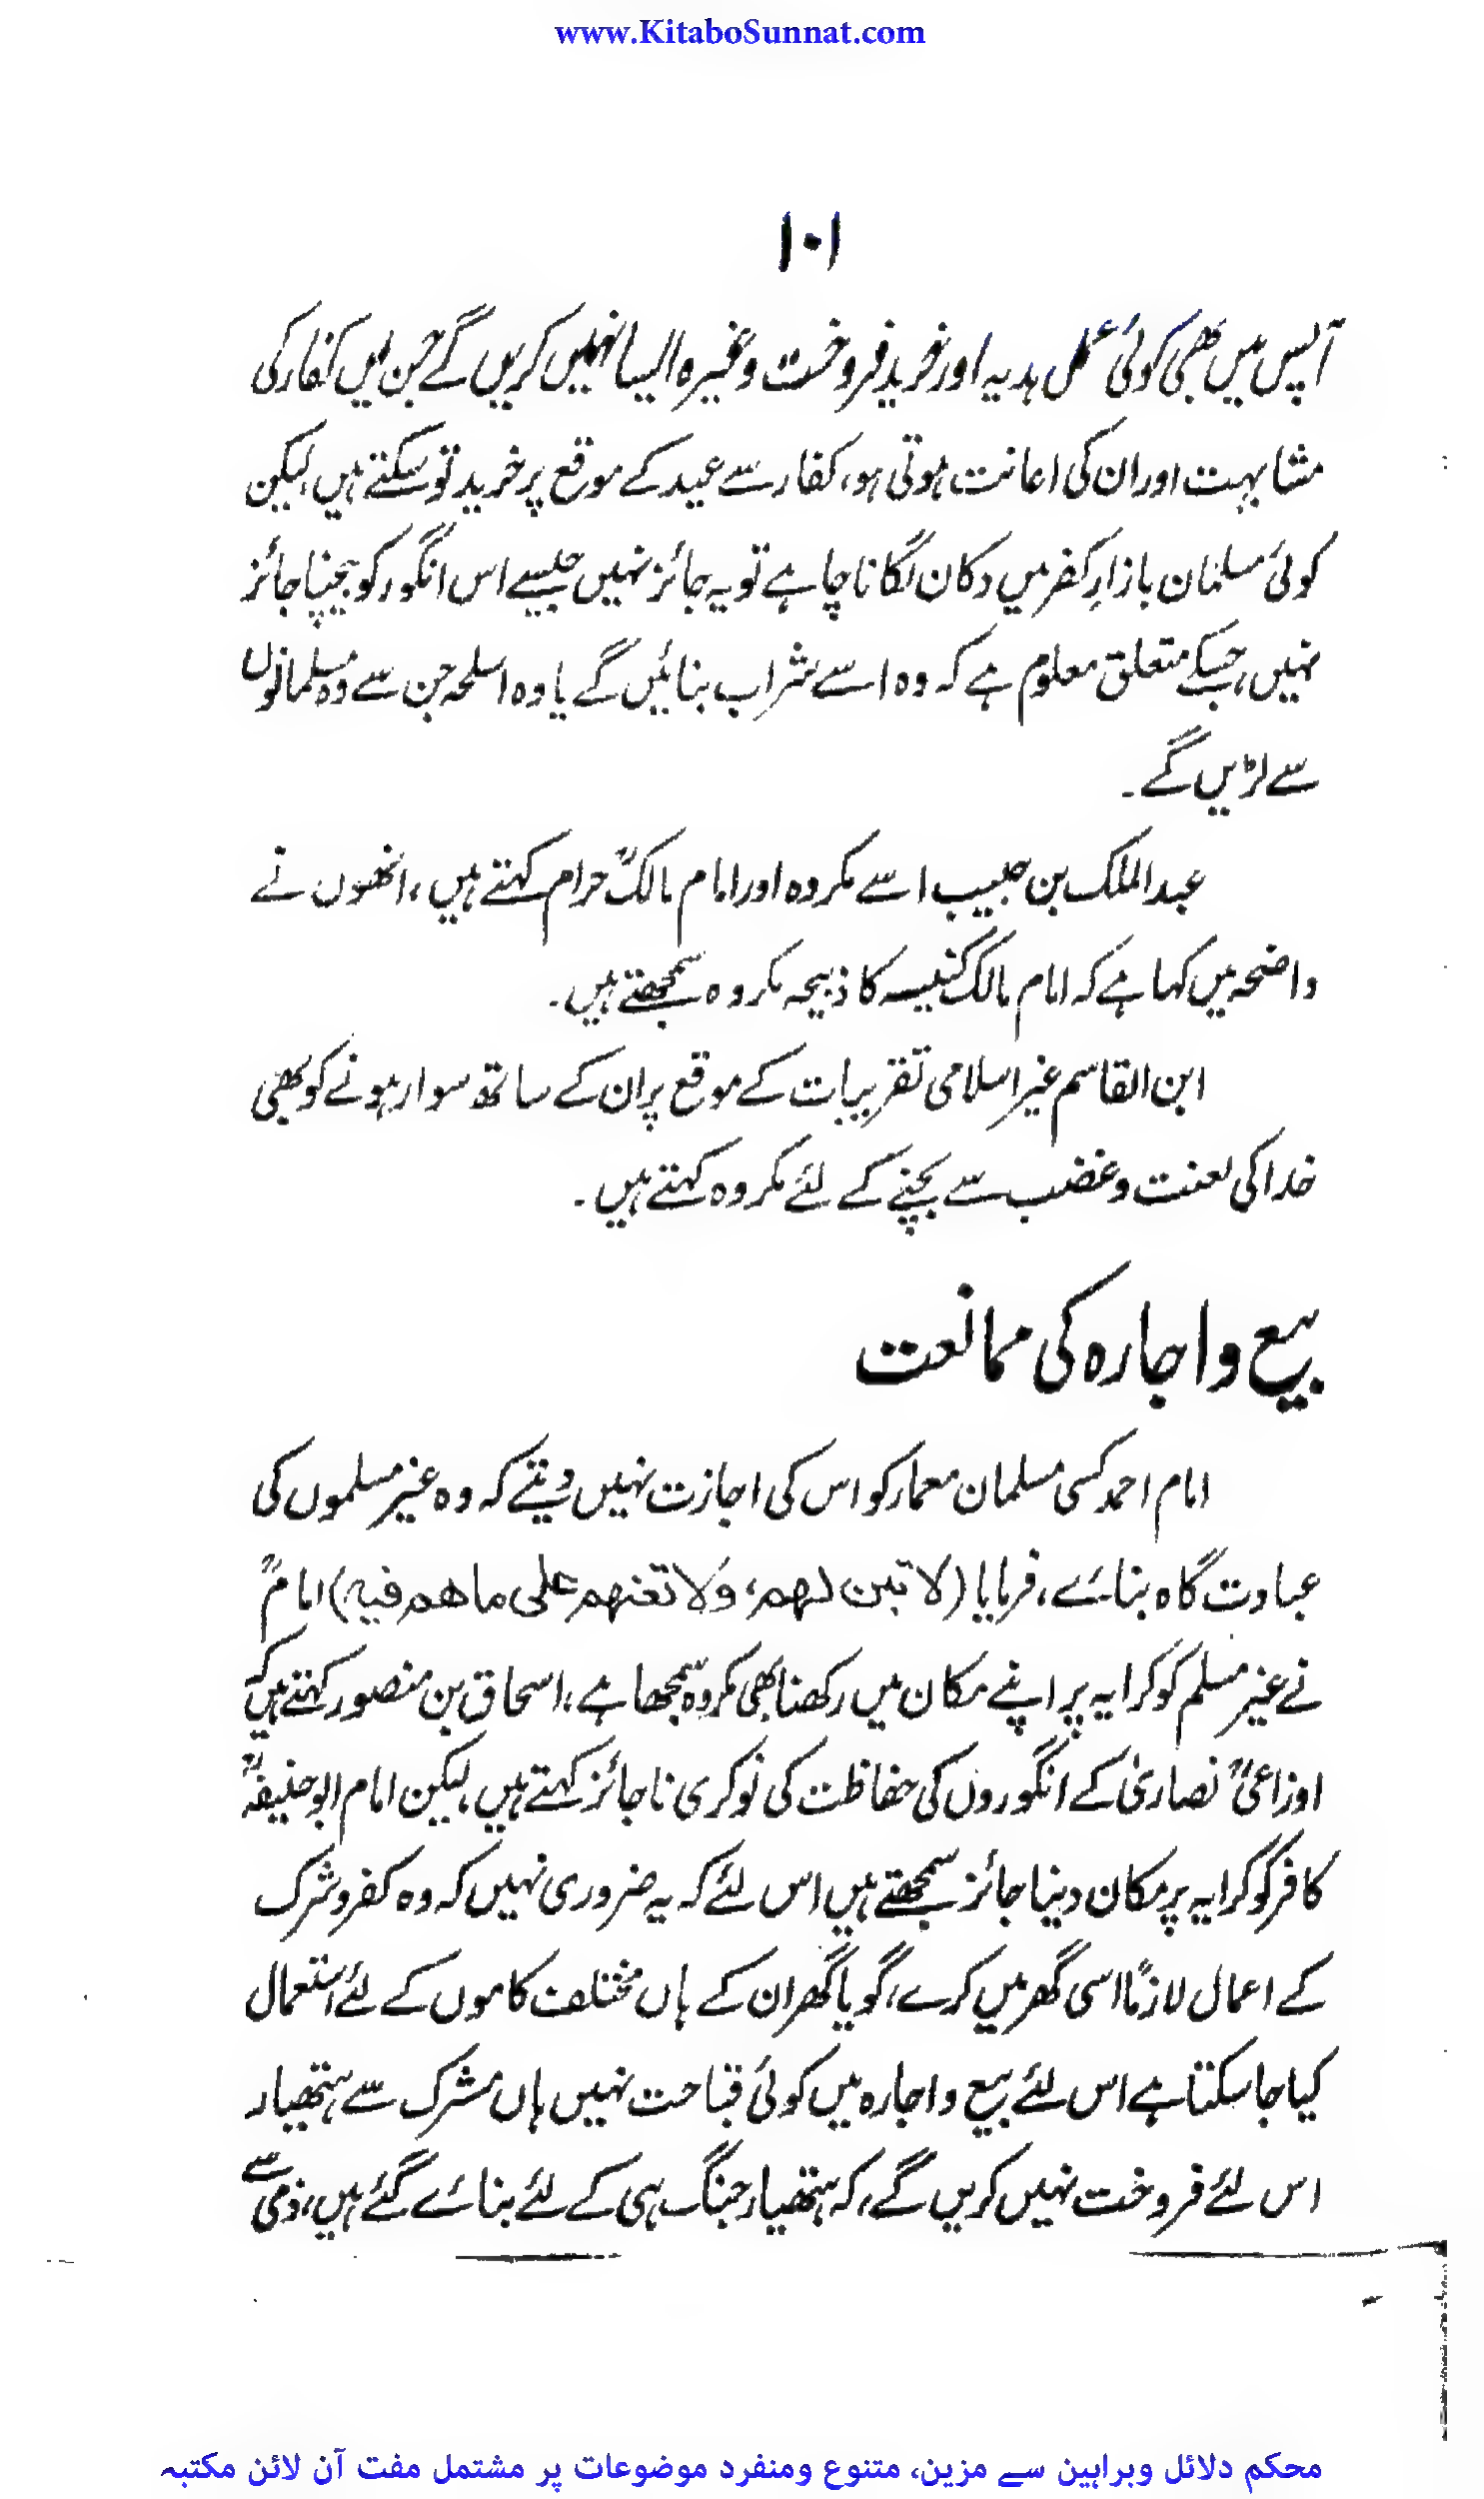 www.KitaboSunnat.com
۱۰۱
آپس میں بھی کوئی عمل ہدیہ اور خرید فروخت وغیرہ ایسا نہیں کریں گے جن میں کفار کی
مشابہت اور ان کی اعانت ہوتی ہو، کفار سے عید کے موقع پر خرید تو سکتے ہیں، لیکن
کوئی مسلمان بازارِ کفر میں دکان لگانا چاہے تو یہ جائز نہیں جیسے اس انگور کو بیچنا جائز
نہیں، جسکے متعلق معلوم ہے کہ وہ اسے شراب بنائیں گے یا وہ اسلحہ جن سے وہ مسلمانوں
سے لڑیں گے۔
عبد الملک بن حبیب اسے مکروہ اور امام مالکؒ حرام کہتے ہیں، انھوں نے
واضحہ میں کہا ہے کہ امام مالک کنیسہ کا ذبیحہ مکروہ سمجھتے ہیں۔
ابن القاسم غیر اسلامی تقریبات کے موقع پر ان کے ساتھ سوار ہونے کو بھی
خدا کی لعنت و غضب سے بچنے کے لئے مکروہ کہتے ہیں۔
بیع و اجارہ کی ممانعت
امام احمد کسی مسلمان معمار کو اس کی اجازت نہیں دیتے کہ وہ غیر مسلموں کی
عبادت گاہ بنائے، فرمایا (لا تبن لهم، ولا تعنهم علی ما هم فیه) امامؒ
نے غیر مسلم کو کرایہ پر اپنے مکان میں رکھنا بھی مکروہ سمجھا ہے، اسحاق بن منصور کہتے ہیں کہ
اوزاعیؒ نصاریٰ کے انگوروں کی حفاظت کی نوکری ناجائز کہتے ہیں، لیکن امام ابوحنیفہؒ
کافر کو کرایہ پر مکان دینا جائز سمجھتے ہیں اس لئے کہ یہ ضروری نہیں کہ وہ کفر و شرک
کے اعمال لازمًا اسی گھر میں کرے، گویا گھر ان کے ہاں مختلف کاموں کے لئے استعمال
کیا جا سکتا ہے اس لئے بیع و اجارہ میں کوئی قباحت نہیں ہاں مشرک سے ہتھیار
اس لئے فروخت نہیں کریں گے، کہ ہتھیار جنگ ہی کے لئے بنائے گئے ہیں، ذمی سے
محکم دلائل وبراہین سے مزین، متنوع ومنفرد موضوعات پر مشتمل مفت آن لائن مکتبہ